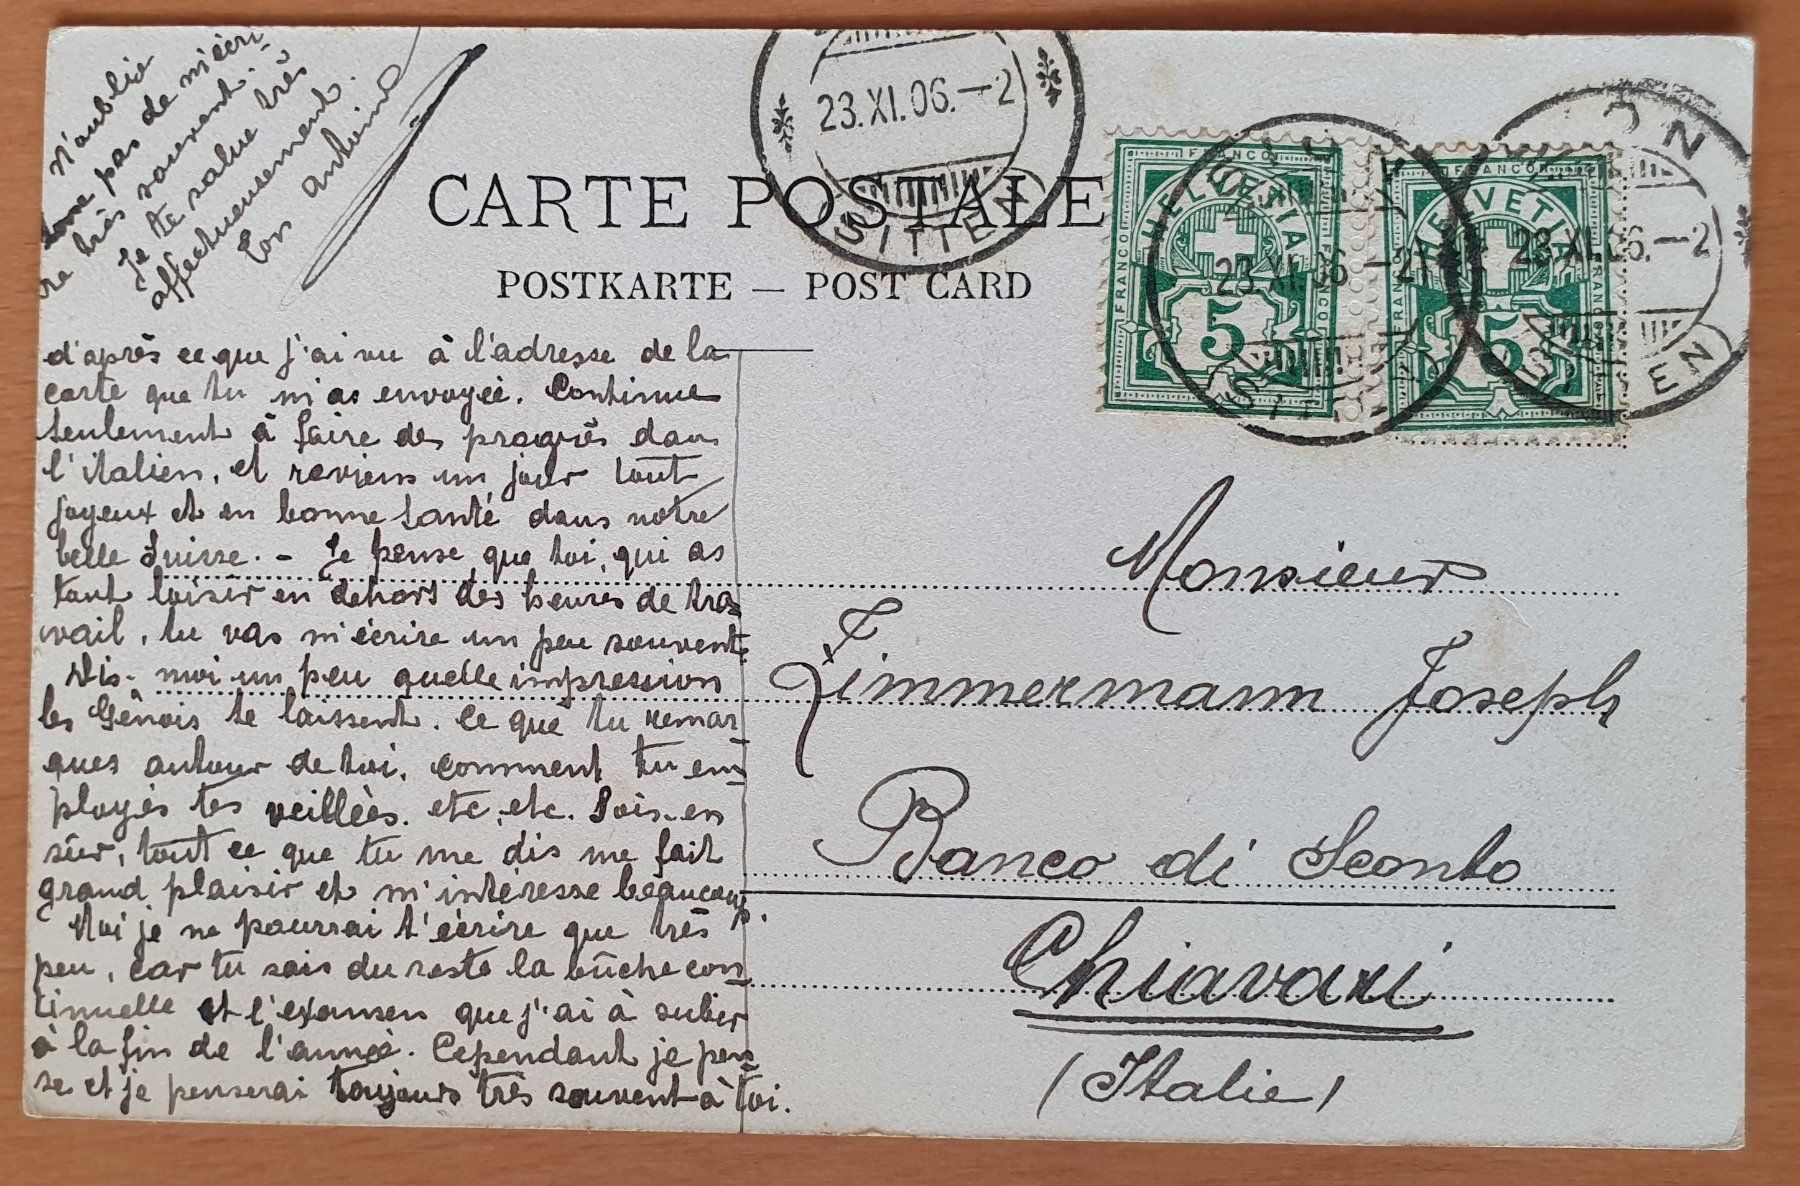 N'oublie
donc pas de m'écri-
re très souvent.
Je te salue très
affectueusement.
Ton Antoine
23.XI.06.-2
SITTEN
CARTE POSTALE
POSTKARTE — POST CARD
FRANCO
HELVETIA
FRANCO
FRANCO
5
23.XI.06.-2
SITTEN
FRANCO
HELVETIA
FRANCO
FRANCO
5
ON
23.XI.06.-2
SITTEN
d'après ce que j'ai vu à l'adresse de la
carte que tu m'as envoyée. Continue
seulement à faire des progrès dans
l'italien, et reviens un jour tout
joyeux et en bonne santé dans notre
belle Suisse. - Je pense que toi, qui as
tant loisir en dehors des heures de tra-
vail, tu vas m'écrire un peu souvent.
Dis-moi un peu quelle impression
les Gênois te laissent. Ce que tu remar-
ques autour de toi, comment tu em-
ployés tes veillées. etc, etc. Sois-en
sûr, tout ce que tu me dis me fait
grand plaisir et m'intéresse beaucoup.
Moi je ne pourrai t'écrire que très
peu, car tu sais du reste la bûche con-
tinuelle et l'examen que j'ai à subir
à la fin de l'année. Cependant je pen-
se et je penserai toujours très souvent à toi.
Monsieur
Zimmermann Joseph
Banco di Sconto
Chiavari
(Italie)